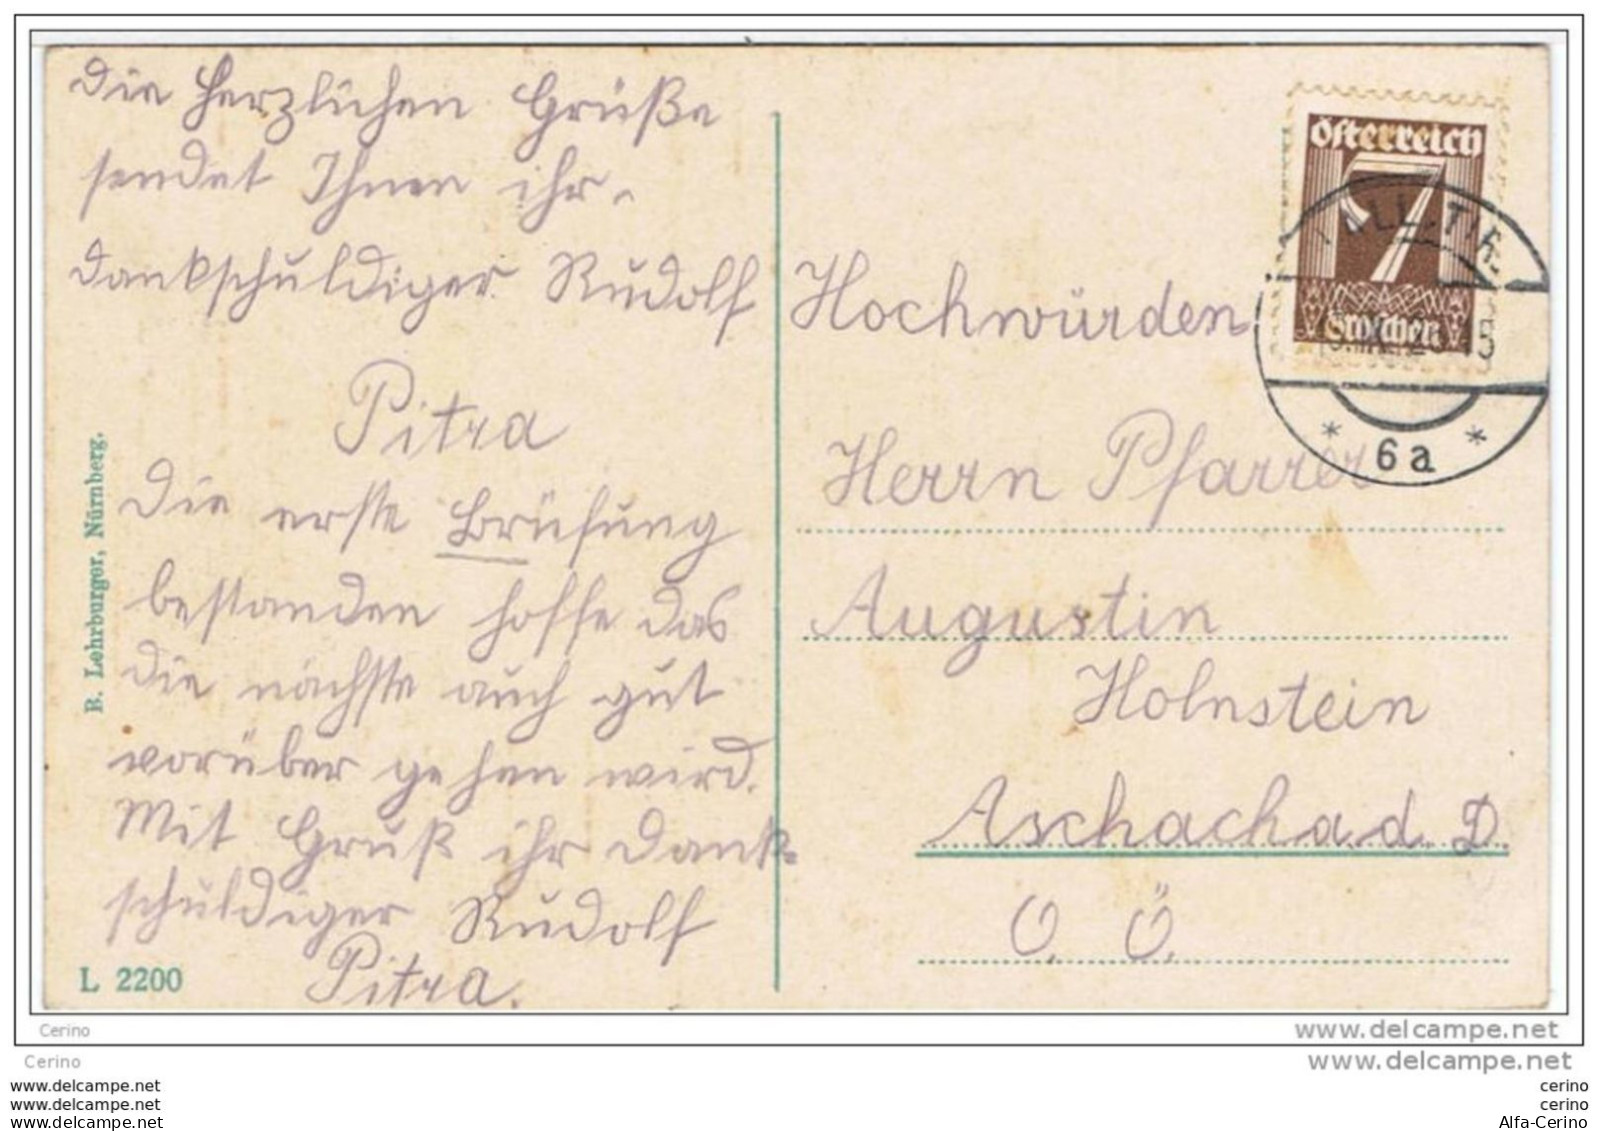 Die herzlichen Grüße
sendet Ihnen ihr.
dankschuldiger Rudolf
Pitra
Die erste Brüfung
bestanden hoffe das
die nächste auch gut
vorüber gehen wird.
Mit Gruß ihr dank-
schuldiger Rudolf
Pitra.
B. Lehrburger, Nürnberg.
L 2200
Österreich
7
Groschen
* 6a *
Hochwürden
Herrn Pfarrer
Augustin
Holnstein
Aschach a. d. D.
O. Ö.
Cerino
www.delcampe.net
Cerino
www.delcampe.net
www.delcampe.net
cerino
www.delcampe.net
cerino
www.delcampe.net
Alfa-Cerino